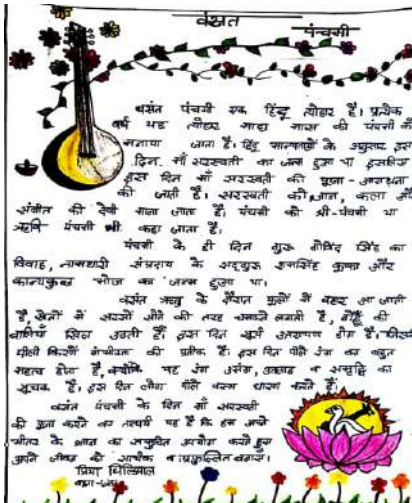 वसंत
पंचमी
वसंत पंचमी एक हिंदू त्योहार है। प्रत्येक
वर्ष यह त्योहार माघ मास की पंचमी को
मनाया जाता है। हिंदू मान्यताओं के अनुसार इस
दिन माँ सरस्वती का जन्म हुआ था इसलिए
इस दिन माँ सरस्वती की पूजा-आराधना
की जाती है। सरस्वती को ज्ञान, कला और
संगीत की देवी माना जाता है। पंचमी को श्री-पंचमी या
ऋषि पंचमी भी कहा जाता है।
पंचमी के ही दिन गुरु गोविंद सिंह का
विवाह, नामधारी संप्रदाय के सद्गुरु रामसिंह कूका और
कान्यकुब्ज भोज का जन्म हुआ था।
वसंत ऋतु के दौरान फूलों में बहार आ जाती
है, खेतों में सरसों सोने की तरह चमकने लगती है, गेहूँ की
बालियाँ खिल उठती हैं। इस दिन सूर्य उत्तरायण होता है।
पीली किरणें गंभीरता की प्रतीक हैं। इस दिन पीले रंग का बहुत
महत्व होता है, क्योंकि यह रंग उमंग, उत्साह व समृद्धि का
सूचक है। इस दिन लोग पीले वस्त्र धारण करते हैं।
वसंत पंचमी के दिन माँ सरस्वती
की पूजा करने का तात्पर्य यह है कि हम अपने
भीतर के ज्ञान का समुचित उपयोग करते हुए
अपने जीवन को सार्थक व प्रफुल्लित बनाएं।
प्रिया